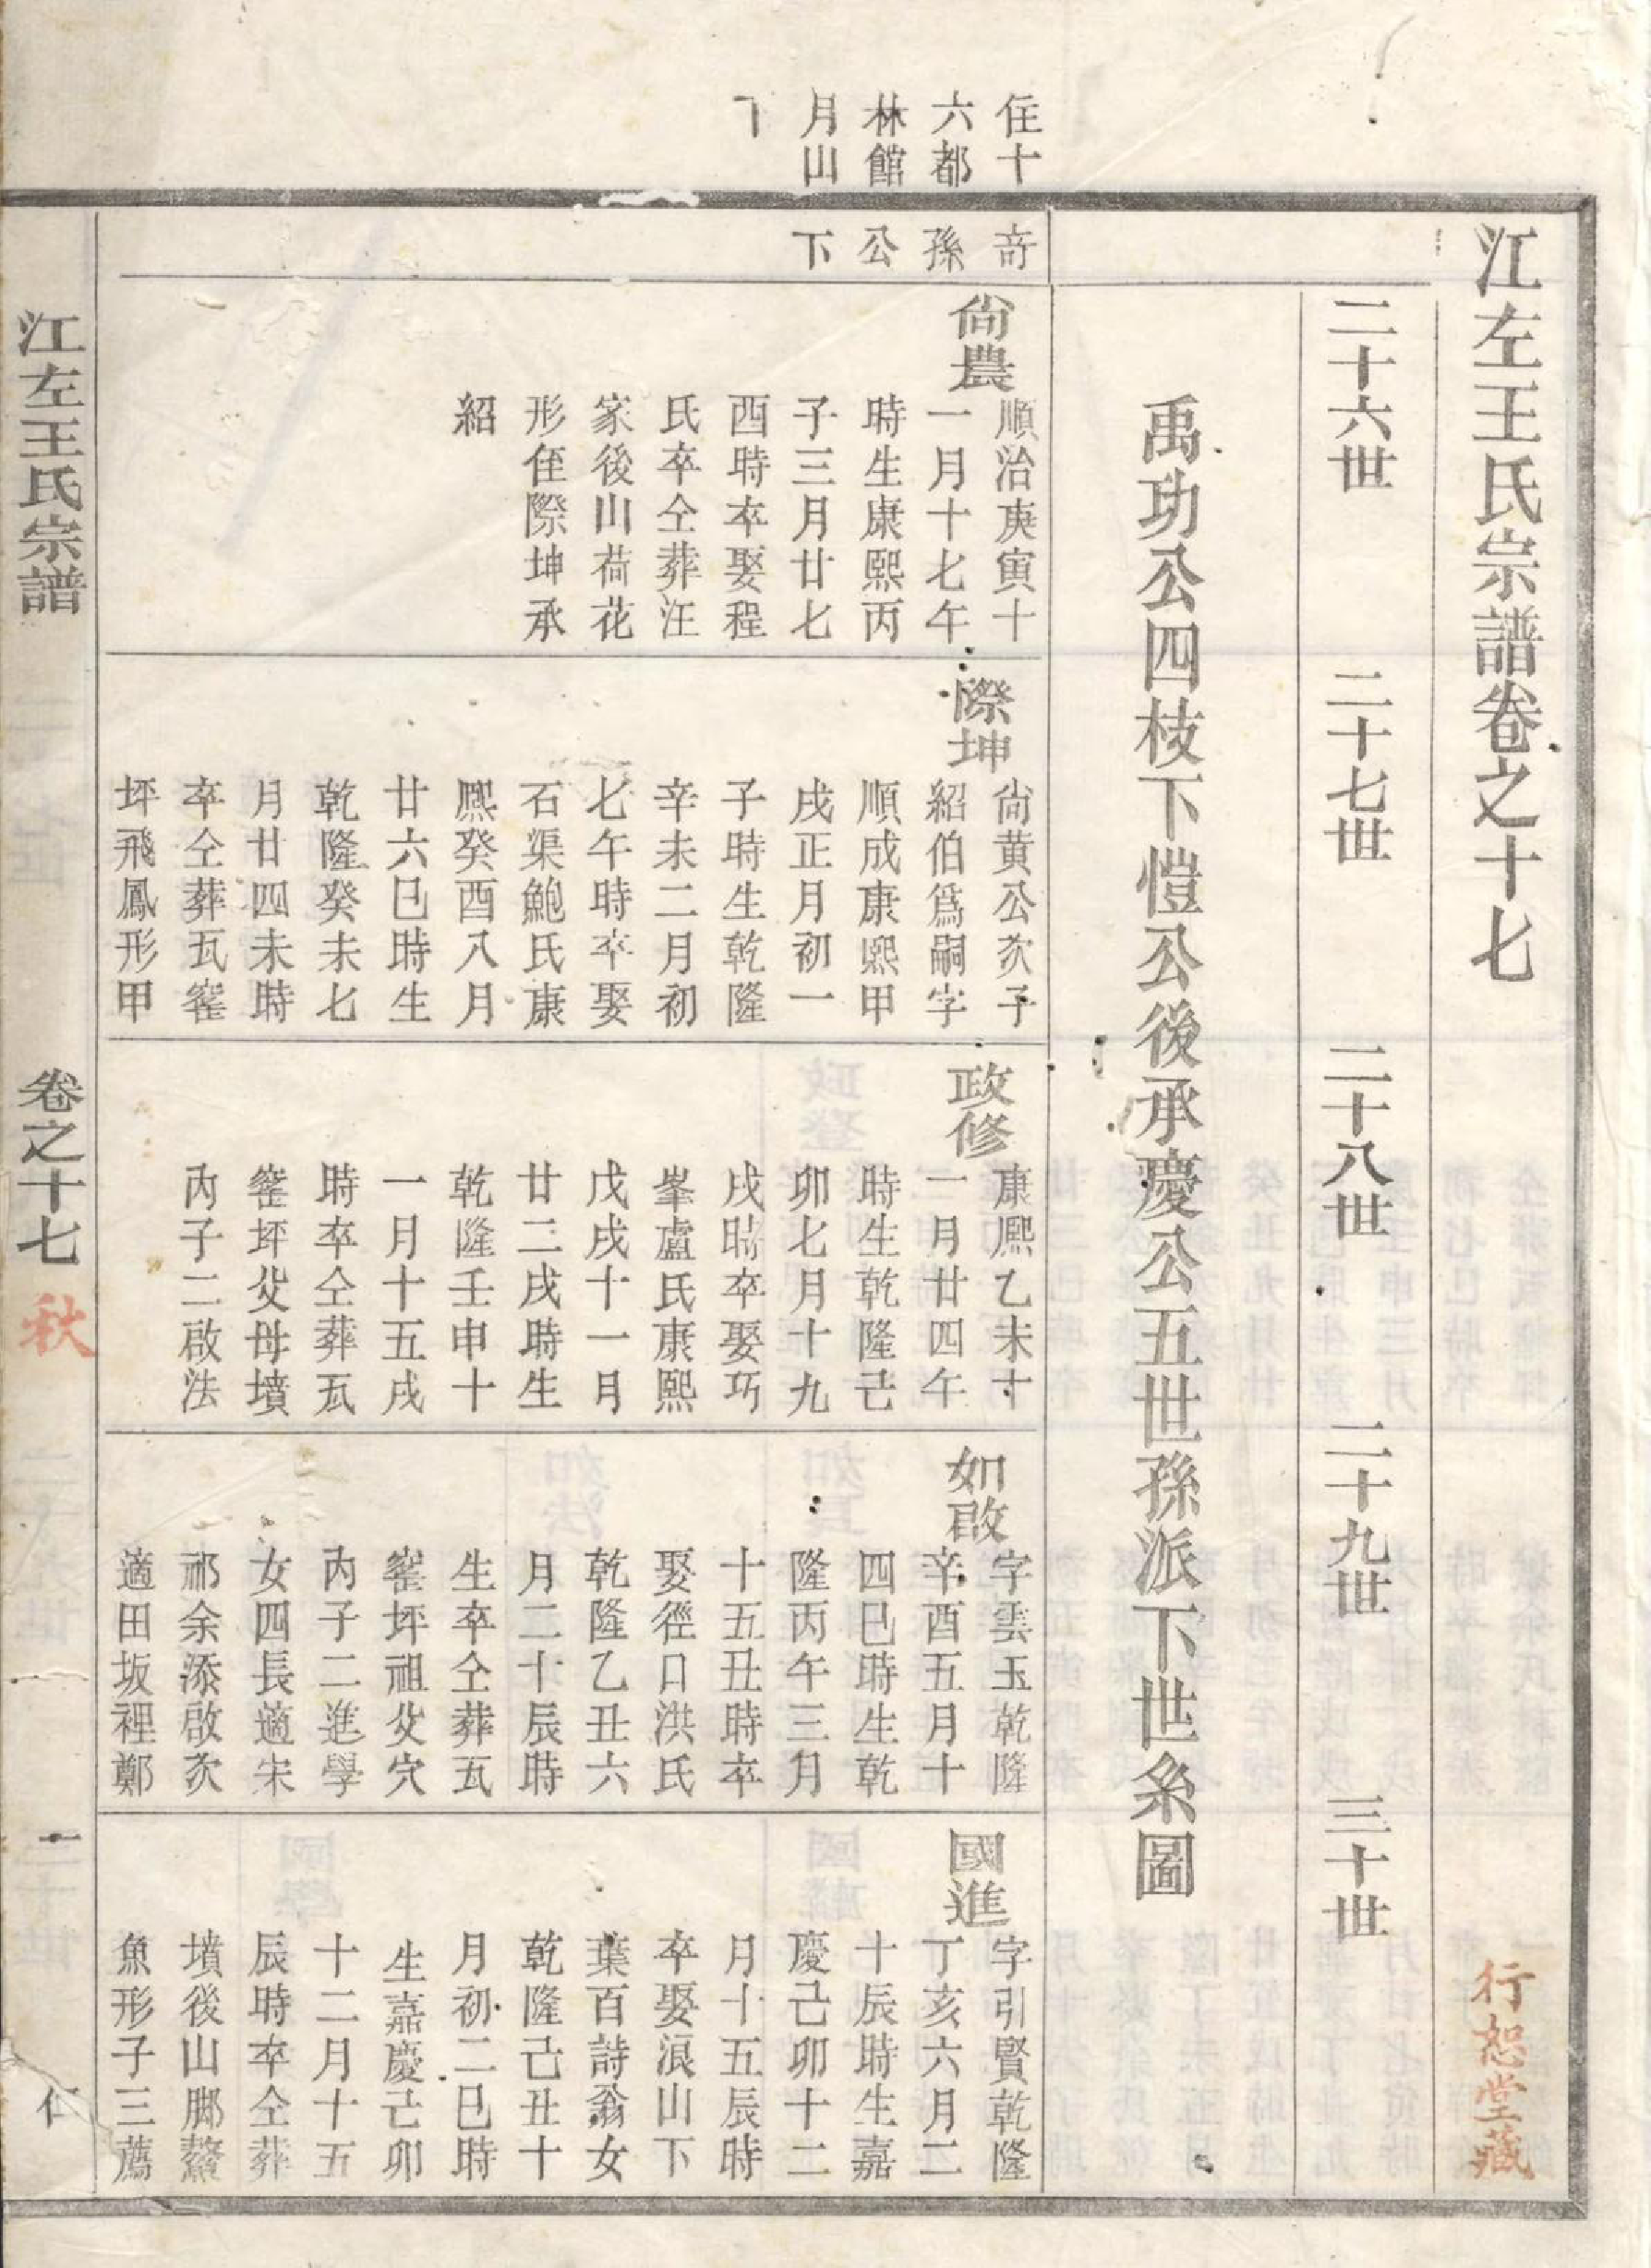 江左王氏宗譜卷之十七
行恕堂藏
二十六世
二十七世
二十八世
二十九世
三十世
禹功公四枝下愷公後承慶公五世孫派下世系圖
住十
六都
林館
月山
奇
孫
公
下
尙農
順治庚寅十
一月十七午
時生康熙丙
子三月廿七
酉時卒娶程
氏卒仝葬汪
家後山荷花
形侄際坤承
紹
際坤
尙黃公次子
紹伯爲嗣字
順成康熙甲
戌正月初一
子時生乾隆
辛未二月初
七午時卒娶
石渠鮑氏康
熈癸酉八月
廿六巳時生
乾隆癸未七
月廿四未時
卒仝葬瓦窰
坪飛鳳形甲
政修
康熈乙未十
一月廿四午
時生乾隆己
卯七月十九
戌時卒娶巧
峯盧氏康熙
戊戌十一月
廿二戌時生
乾隆壬申十
一月十五戌
時卒仝葬瓦
窰坪父母墳
內子二啟法
如啟
字雲玉乾隆
辛酉五月十
四巳時生乾
隆丙午三月
十五丑時卒
娶徑口洪氏
乾隆乙丑六
月二十辰時
生卒仝葬瓦
窰坪祖父穴
內子二進學
女四長適宋
祁余添啟次
適田坂裡鄭
國進
字引賢乾隆
丁亥六月二
十辰時生嘉
慶己卯十二
月十五辰時
卒娶浪山下
葉百詩翁女
乾隆己丑十
月初二巳時
生嘉慶己卯
十二月十五
辰時卒仝葬
墳後山脚鰲
魚形子三薦
江左王氏宗譜
卷之十七
秋
一
仁